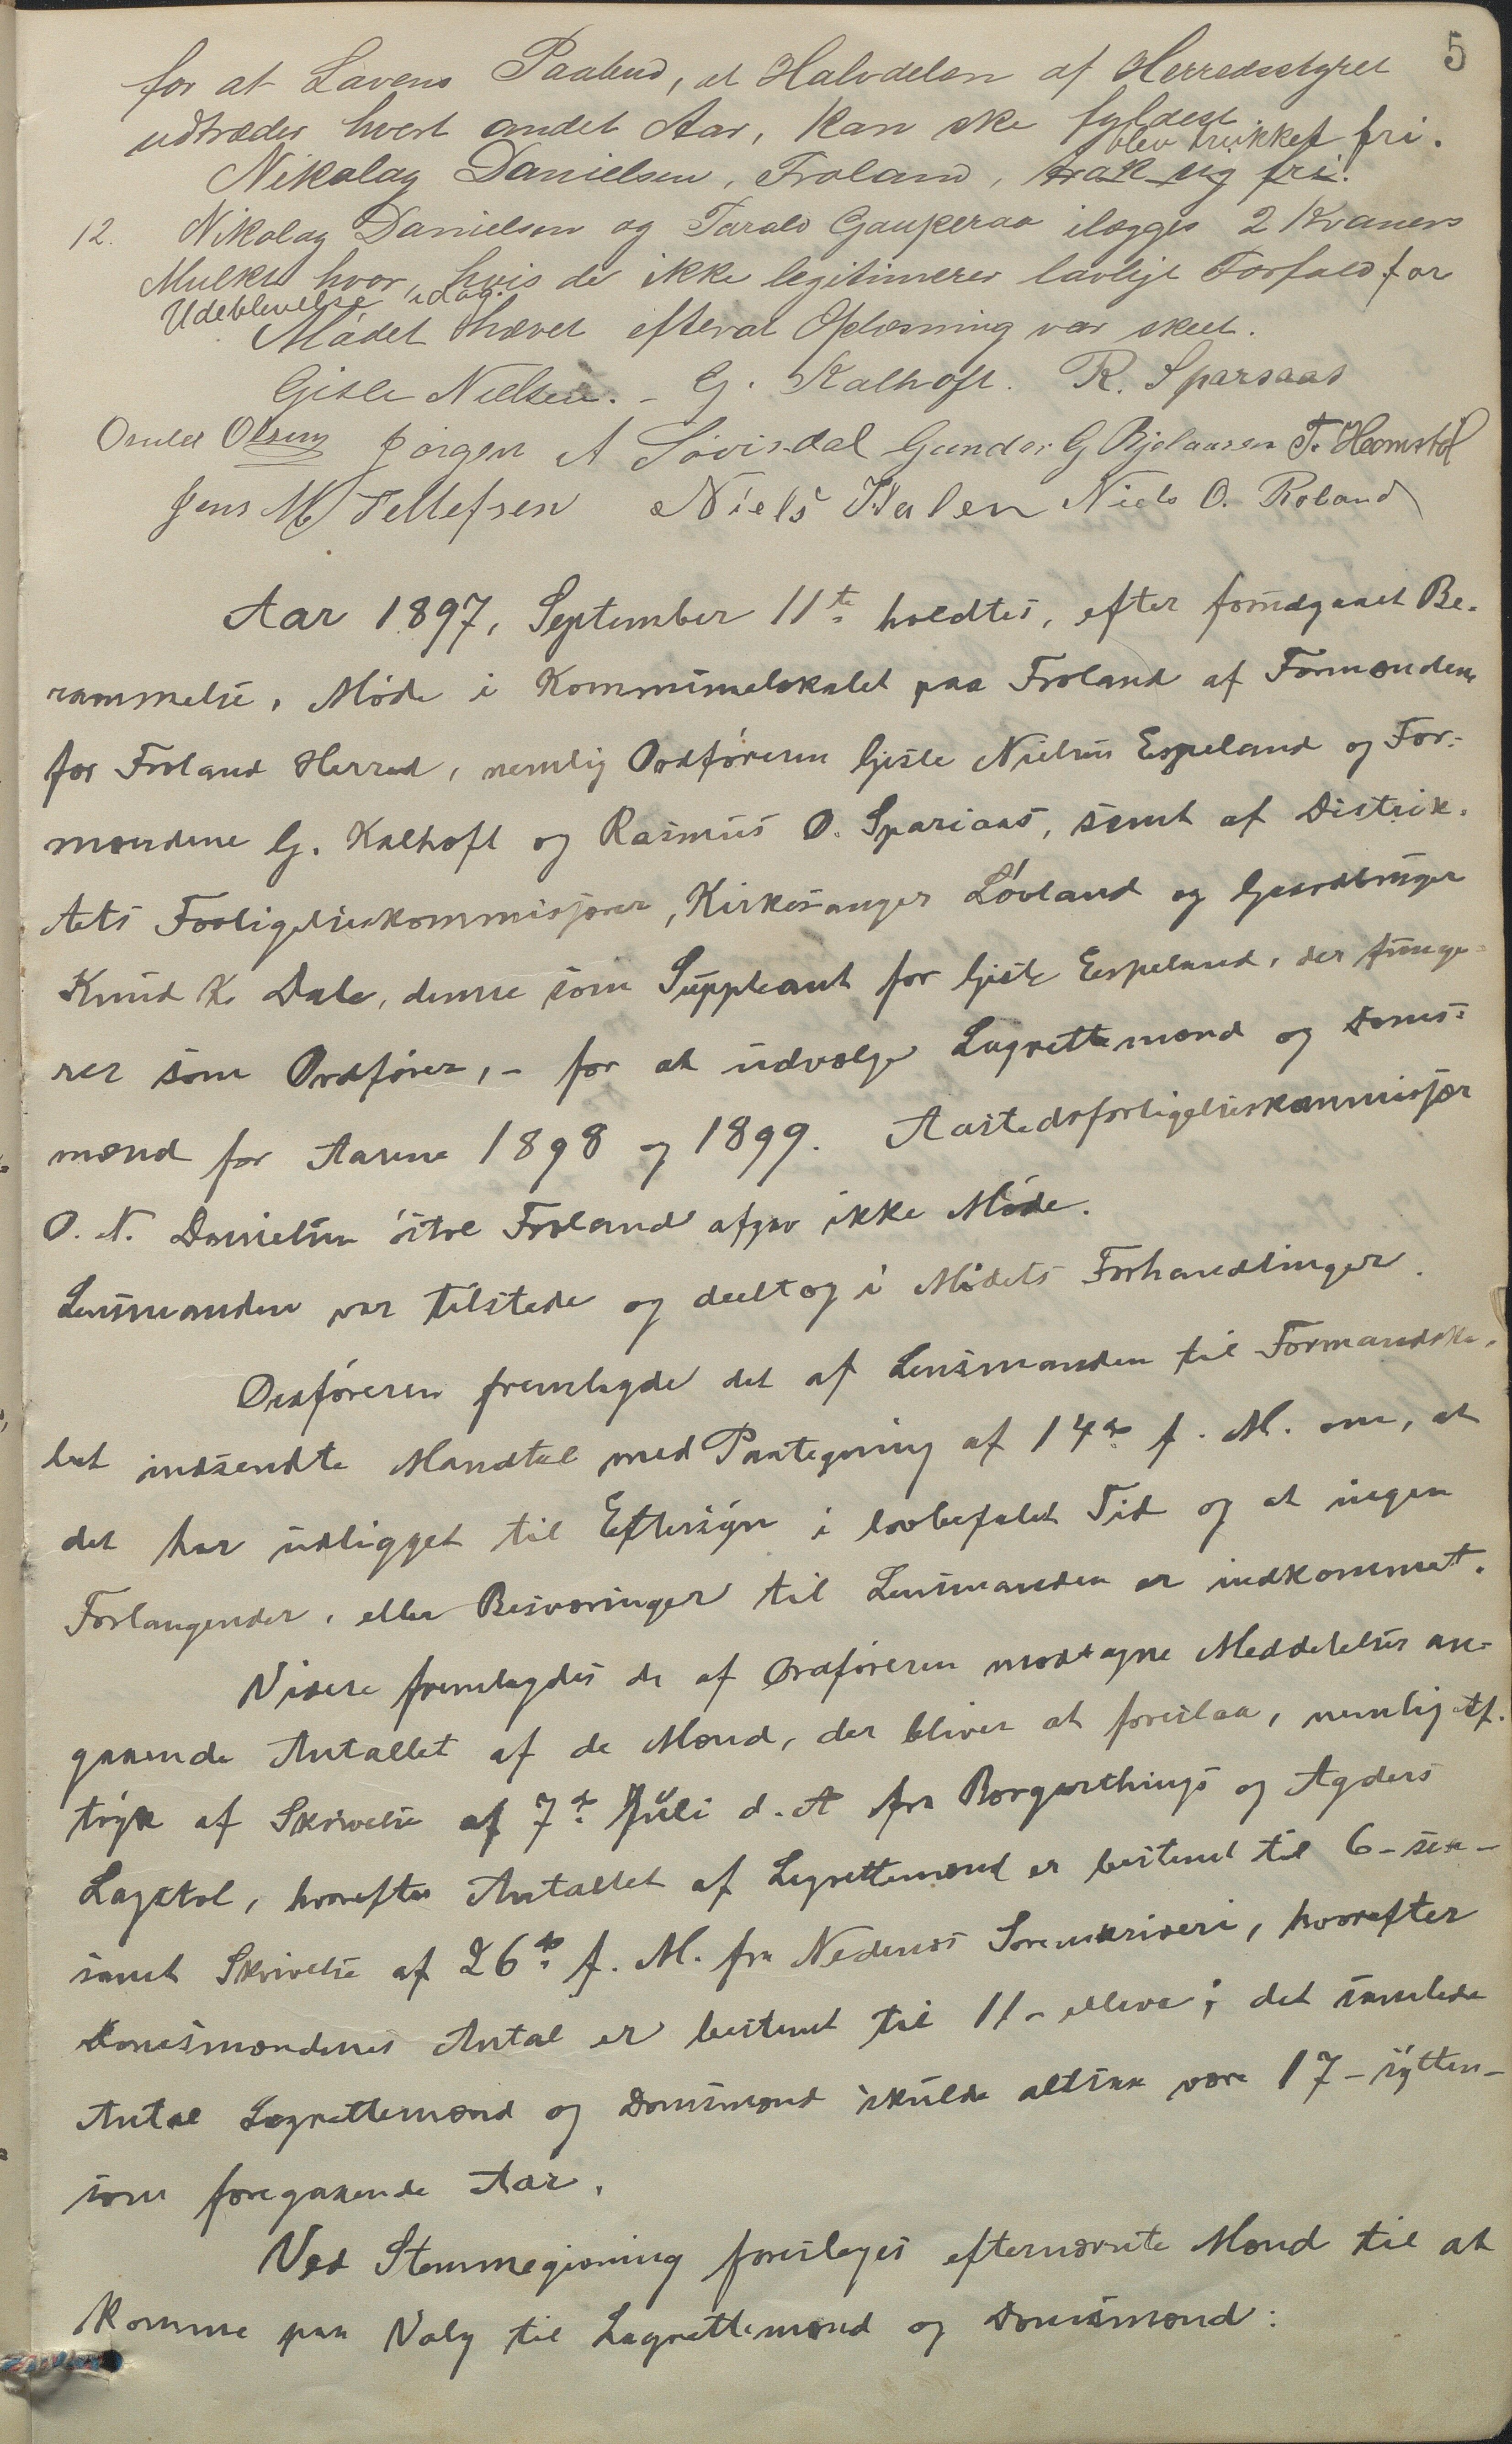 5
for at Lovens Paabud, at Halvdelen af Herredsstyret
udtræder hvert andet Aar, kan ske fyldest.
blev trukket fri.
Nikolay Danielsen, Froland, trak sig fri.
12. Nikolay Danielsen og Tarald Gauperaa ilægges 2 Kroners
Mulkt hver, hvis de ikke legitimerer lovligt Forfald for
Udeblivelse idag.
Mødet hævet efterat Oplæsning var skeet.
Gisle Nielsen. - G. Kalhoft. R. Sparsaas
Omled Olsen Jørgen A Løvisdal Gunder G Bjelaasen T. Heemstøl
Jens M Tellefsen Niels Dalen Niels O. Roland
Aar 1897, September 11te holdtes, efter forudgaaet Be-
rammelse, Møde i Kommunelokalet paa Froland af Formændene
for Froland Herred, nemlig Ordføreren Gisle Nielsen Espeland og For-
mændene G. Kalhoft og Rasmus O. Sparsaas, samt af Distrik-
tets Forligelseskommissjærer, Kirkesanger Løvland og Gaardbruger
Knud K. Dale, denne som Suppleant for Gisle Espeland, der funge-
rer som Ordfører, - for at udvælge Lagrettemænd og Doms-
mænd for Aarene 1898 og 1899. Aastedsforligelseskommisjær
O. N. Danielsen østre Froland afgav ikke Møde.
Lensmanden var tilstede og deeltog i Mødets Forhandlinger.
Ordføreren fremlagde det af Lensmanden til Formandska-
bet indsendte Mandtal med Paategning af 14de f. M. om, at
det har udligget til Eftersyn i lovbefalet Tid og at ingen
Forlangender, eller Besværinger til Lensmanden er indkommet.
Videre fremlagdes de af Ordføreren modtagne Meddelelser an-
gaaende Antallet af de Mænd, der bliver at foreslaa, nemlig Af-
tryk af Skrivelse af 7de Juli d. A fra Borgarthings og Agders
Lagstol, hvorefter Antallet af Lagrettemænd er bestemt til 6 - sex -
samt Skrivelse af 26de f. M. fra Nedenæs Sorenskriveri, hvorefter
Domsmændenes Antal er bestemt til 11 - elleve; det samlede
Antal Lagrettemænd og Domsmænd skulde altsaa være 17 - sytten -
som foregaaende Aar.
Ved Stemmegivning foresloges efternævnte Mænd til at
komme paa Valg til Lagrettemænd og Domsmænd: